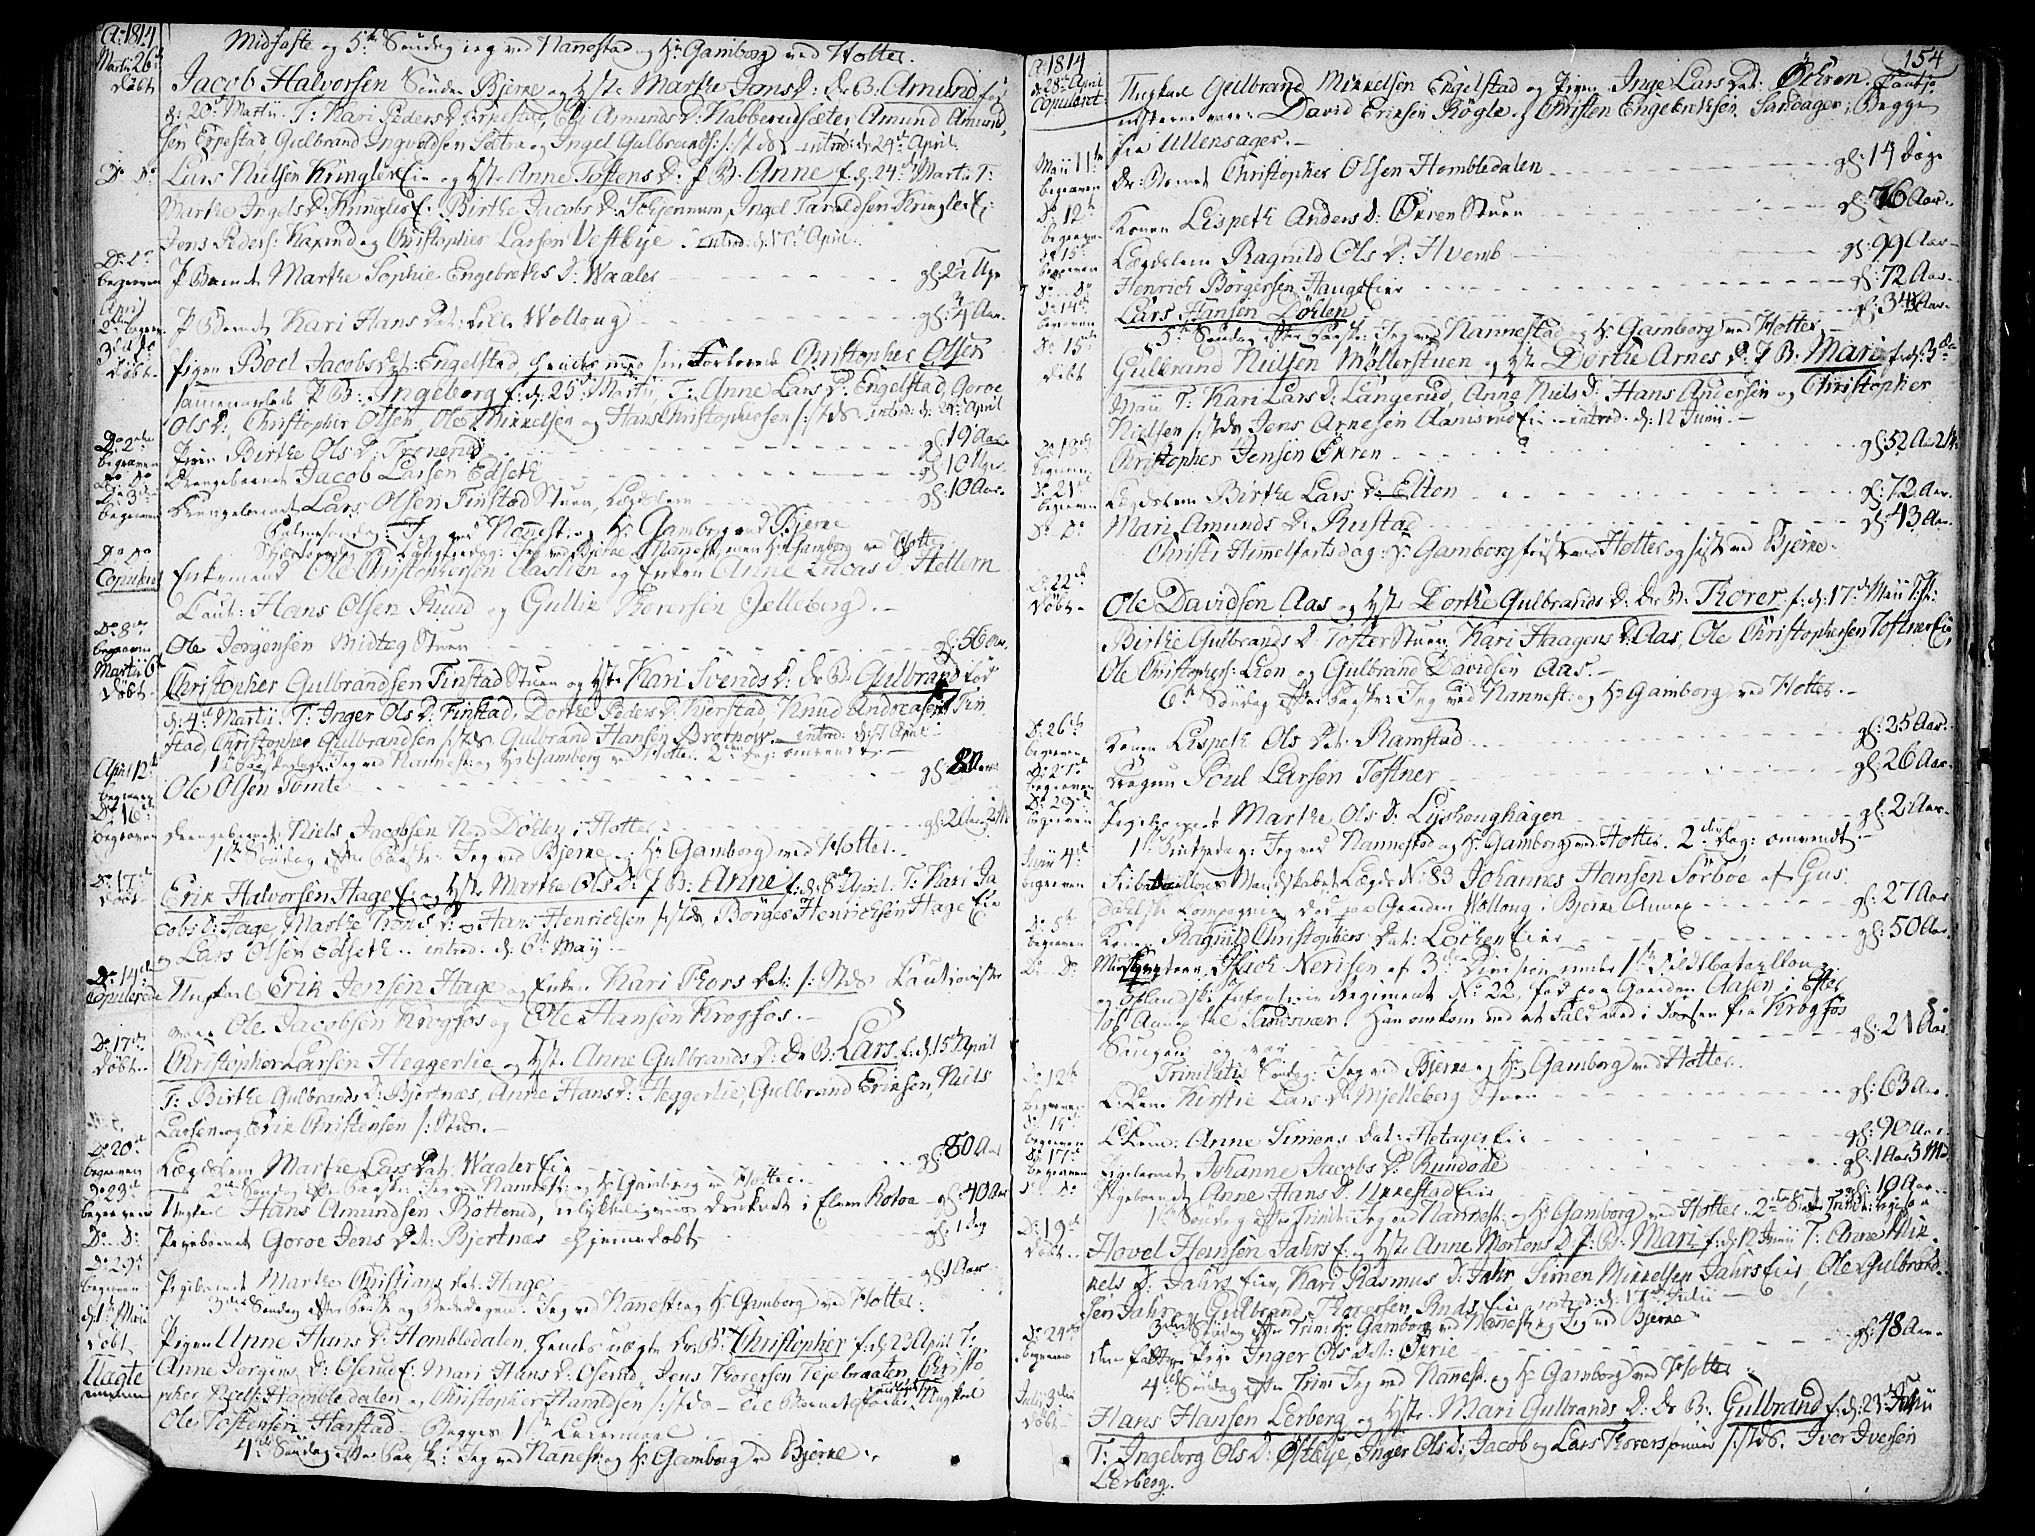 A: 1814
Midfaste og 5te Søndag jeg ved Nannestad og Hr Gamborg ved Holter.
Martii 26
døbt
Jacob Halvorsen Søndre Bjerne og Hst. Marthe Jens D: Dr. B: Amund
d: 20de Martii. T: Kari Peders D: Eppestad, Else Amunds D: Kabberudsæter, Amund Amund
sen Eppestad Gulbrand Ingvoldsen Sætra og Ingel Gulbrands: s: Sds introd: d: 24de April
Do Do
Lars Nielsen Kringler Eie og Hst Anne Tostens D: P B: Anne f. d: 24de Martii T:
Marthe Ingels D: Kringler E: Birthe Jacobs D: Ingel Taraldsen Kringler Ei
Jens Peders: Kaxrud og Christopher Larsen Vestbye introd: d: 17de April.
begraven
P Barnet Marthe Sophie Engebreths D: Waaler gl: 2 Uger
April
P Barnet Kari Hans Dat: Lille Wolloug gl: 3/4 Aar.
døbt
Pigen Boel Jacobs Dat: Engelstad hendes med sin Forlovede Christopher Olsen
sammenavlede P B: Ingeborg f: d: 25de Martii, T: Anne Lars D: Engelstad, Goroe
Ols D:, Christopher Olsen, Ole Mikkelsen og Hans Christophersen s: Sds. introd: d: 24de April
begraven
Pigen Birthe Ols D: Trønerud gl: 19 Aar
Do Do
Drengebarnet Jacob Larsen Edseth gl: 10 Uger
begraven
Drengebarnet Lars Olsen Finstad Stuen, Lægdslem gl: 10 Aar.
Palmesøndag: Jeg ved Nannest: og Hr Gamborg ved Bjerne
Skjærtorsdag og Langfredag: Jeg ved Bjerne og Nannest, men Hr Gamborg ved Holter.
Do Do
Copuleret
Enkemand Ole Christophersen Aaslien og Enken Anne Lucas D: Hellern
Caut: Hans Olsen Ruud og Gullik Thorersen Gjelleberg.
Do 8de
begraven
Ole Jørgensen Midteg Stuen gl: 56 Aar.
Martii 6
Døbt
Christopher Gulbrandsen Finstad Stuen og Hst. Kari Svends D: Dr B: Gulbrand fød
d: 4de Martii. T: Inger Ols D: Finstad. Dorthe Peders D: Kjerstad, Knud Andreasen Fin
stad, Christopher Gulbrandsen s: Sds. Gulbrand Hansen Brotnow. introd: d: April
1te Paaskedag: Jeg ved Nannest: og Hr Gamborg ved Holter. 2den Dag: omvendt.
April 12te
begraven
Ole Olsen Tømte gl: 80
Do 16
begraven
Drengebarnet Niels Jacobsen Nordre Døhlen i Holter gl: 2 Aar
1te Søndag efter Paaske: Jeg ved Bjerne og Hr Gamborg ved Holter.
Do 17de
døbt
Erik Halvorsen Hage E: og Hst. Marthe Ols D: P B: Anne f: d: 8de April. T: Kari Ja
cobs D: Hage, Marthe Thors D: og Hans Henrichsen s: Sds, Børger Henrichsen Hage Eie
og Lars Olsen Edseth. introd. d: 6te May.
Do 14de
Copulerede
Ungkarl Erik Jensen Hage og Enken Kari Thors Dat: s: Sds Cautionister
vare Ole Jacobsen Krogfos og Ole Hansen Krogfos.
Do 17de
Døbt
Christopher Larsen Heggerlie og Hst. Anne Gulbrands D: Dr B: Lars f. d. 15de April
T: Birthe Gulbrands D: Bjertnæs, Anne Hans D: Heggerlie, Gulbrand Eriksen, Niels
Larsen og Erik Christensen s: Sds.
Do 20de
begraven
Lægdslem Marthe Lars Dat: Waaler Eie gl: 80 Aar
2den Søndag efter Paaske: Jeg ved Nannest: og Hr Gamborg ved Holter.
Do 23de
begraven
Ungkarl Hans Amundsen Røtterud, ulykkeligvis druknet i Elven Rotoe gl: 40 Aar
Do Do
Pigebarnet Goroe Jens Dat: Bjertnæs Hjemmedøbt gl: 1 dag
Do 29de
begraven
Pigebarnet Marthe Christians Dat: Hage gl: 1 Aar
3die Søndag efter Paaske og Bededagen: Jeg ved Nannest: og Hr Gamborg ved Holter:
d: 1te Maii
døbt
Pigen Anne Hans D: Hombledalen hendes uægte Dr: B: Christopher f: d: 23 April T:
Uægte
Anne Jørgens D: Oserud E: Mari Hans D: Oserud, Jens Thorersen Tejebraaten, Christo
pher Niels: Hombledalen og Christopher Haraldsen s: Sds. Til Barnefader udlagt Ungkarl
Ole Tostensen Harstad. Begges 1te Leiermaal
4de Søndag efter Paaske: Jeg ved Nannest: og Hr Gamborg ved Bjerne.
154
A: 1814
d: 28de April
Copuleret
Ungkarl Gulbrand Mikkelsen Engelstad og Pigen Inge Lars Dat: Ochron. Cautio
nisterne vare: David Eriksen Røgle og Christen Engebrethsen Sandager, Begge
fra Ullensager.
Maii 11te
begraven
Dr: Barnet Christopher Olsen Hombledalen gl: 14 dage
Do 12te
begraven
Konen Lispeth Anders D: Økren Stuen gl: 76 Aar.
Do 15
begraven
Lægdslem Ragnild Ols D: Hvemb gl: 99 Aar
Do Do
Henrich Børgersen Hauge Eier gl: 72 Aar.
Do 14de
begraven
Lars Hansen Døhlen gl: 34 Aar.
5te Søndag efter Paaske: Jeg ved Nannestad og Hr Gamborg ved Holter.
Do 15de
døbt
Gulbrand Nielsen Møllerstuen og Hst. Dorthe Arnes D: P B: Mari f: d: 3die
Maii T: Kari Lars D: Langerud, Anne Niels D: Hans Andersen og Christopher
Nielsen s: Sds, Jens Arnesen Aamsrud Eie. introd. d: 12 Junii.
Do 18de
begraven
Christopher Jensen Økren gl: 52 Aar
Do 21de
begraven
Lægdslem Birthe Lars D: Elton gl: 72 Aar.
Do Do
Mari Amunds D: Rustad gl: 43 Aar.
Christi Himmelfartsdag: Hr Gamborg først ved Holter og sidst ved Bjerne.
Do 22de
Døbt
Ole Davidsen Aas og Hst Dorthe Gulbrands D: Dr B: Thorer f: d: 17de Maii T:
Birthe Gulbrands D: Tofter Stuen, Kari Haagens D: Aas, Ole Christophersen Toftner Eie
Ole Christophers: Lien og Gulbrand Davidsen Aas.
6te Søndag efter Paaske: Jeg ved Nannest: og Hr Gamborg ved Holter.
Do 26te
begraven
Konen Lispeth Ols Dat: Ramstad gl: 25 Aar.
Do 27de
begraven
Dragon Poul Larsen Toftner gl: 26 Aar.
Do 29de
begraven
Pigebarnet Marthe Ols D: Lyshoughagen gl: 2 Aar.
1te Pintsedag: Jeg ved Nannestad og Hr Gamborg ved Holter. 2den Dag: omvendt
Junii 4de
begraven
Mandskabet Lægds No 83 Johannes Hansen Sørbøe af Gus
dahlske Compagnie død paa Gaarden Wolloug i Bjerne Annex gl: 27 Aar
Do 5te
begraven
Konen Ragnild Christophers Dat: Løchen Eier gl: 50 Aar.
Do Do
Isach Nerisen af 3die Division under 1te Feldtbataillon
Oplandske Infanterie Regiment No 22, fød paa Gaarden Aasen i Efte
løt Annex til Sandsvær. Han omkom ved et Fald ned i Fossen fra Krogfos
Saugen og var gl: 21 Aar
Trinitatis Søndag: Jeg ved Bjerne og Hr Gamborg ved Holter.
Do 12te
begraven
Kirstie Lars D: Mjelleberg Stuen gl: 63 Aar.
begraven
Anne Simens Dat: Hetager Eie gl: 90 Aar.
Do 17de
begraven
Pigebarnet Johanne Jacobs D: Rundøde gl: 1 Aar 3 Md
Do Do
Pigebarnet Anne Hans D: Ukkestad Eie gl: 10 Aar.
1te Søndag efter Trinit: Jeg ved Nannest: og Hr Gamborg ved Holter.
Do 19de
døbt
Hovel Hansen Jahrs E: og Hst Anne Mortens D: P: B: Mari f: d: 12 Junii T: Anne Mik
kels D: Jahrs Eier, Kari Rasmus D: Jahr Simen Mikkelsen Jahrs Eier, Ole Gulbrand
sen Jahr Gulbrand Thorersen Eie introd: d: 17de Julii
3die Søndag efter Trin: Hr Gamborg ved Nannest: og Jeg ved Bjerne
Do 24de
begraven
Den fattige Pige Inger Ols Dat: Økrie gl: 48 Aar.
4de Søndag efter Trin: Jeg ved Nannest: og Hr Gamborg ved Holter
Julii 3die
døbt
Hans Hansen Lerberg og Hst. Mari Gulbrands D: Dr B: Gulbrand f: d: 21de Junii
T: Ingeborg Ols D: Østbye, Inger Ols D: Jacob og Lars Thorersønner s: Sds. Iver Iversen
Lerberg.